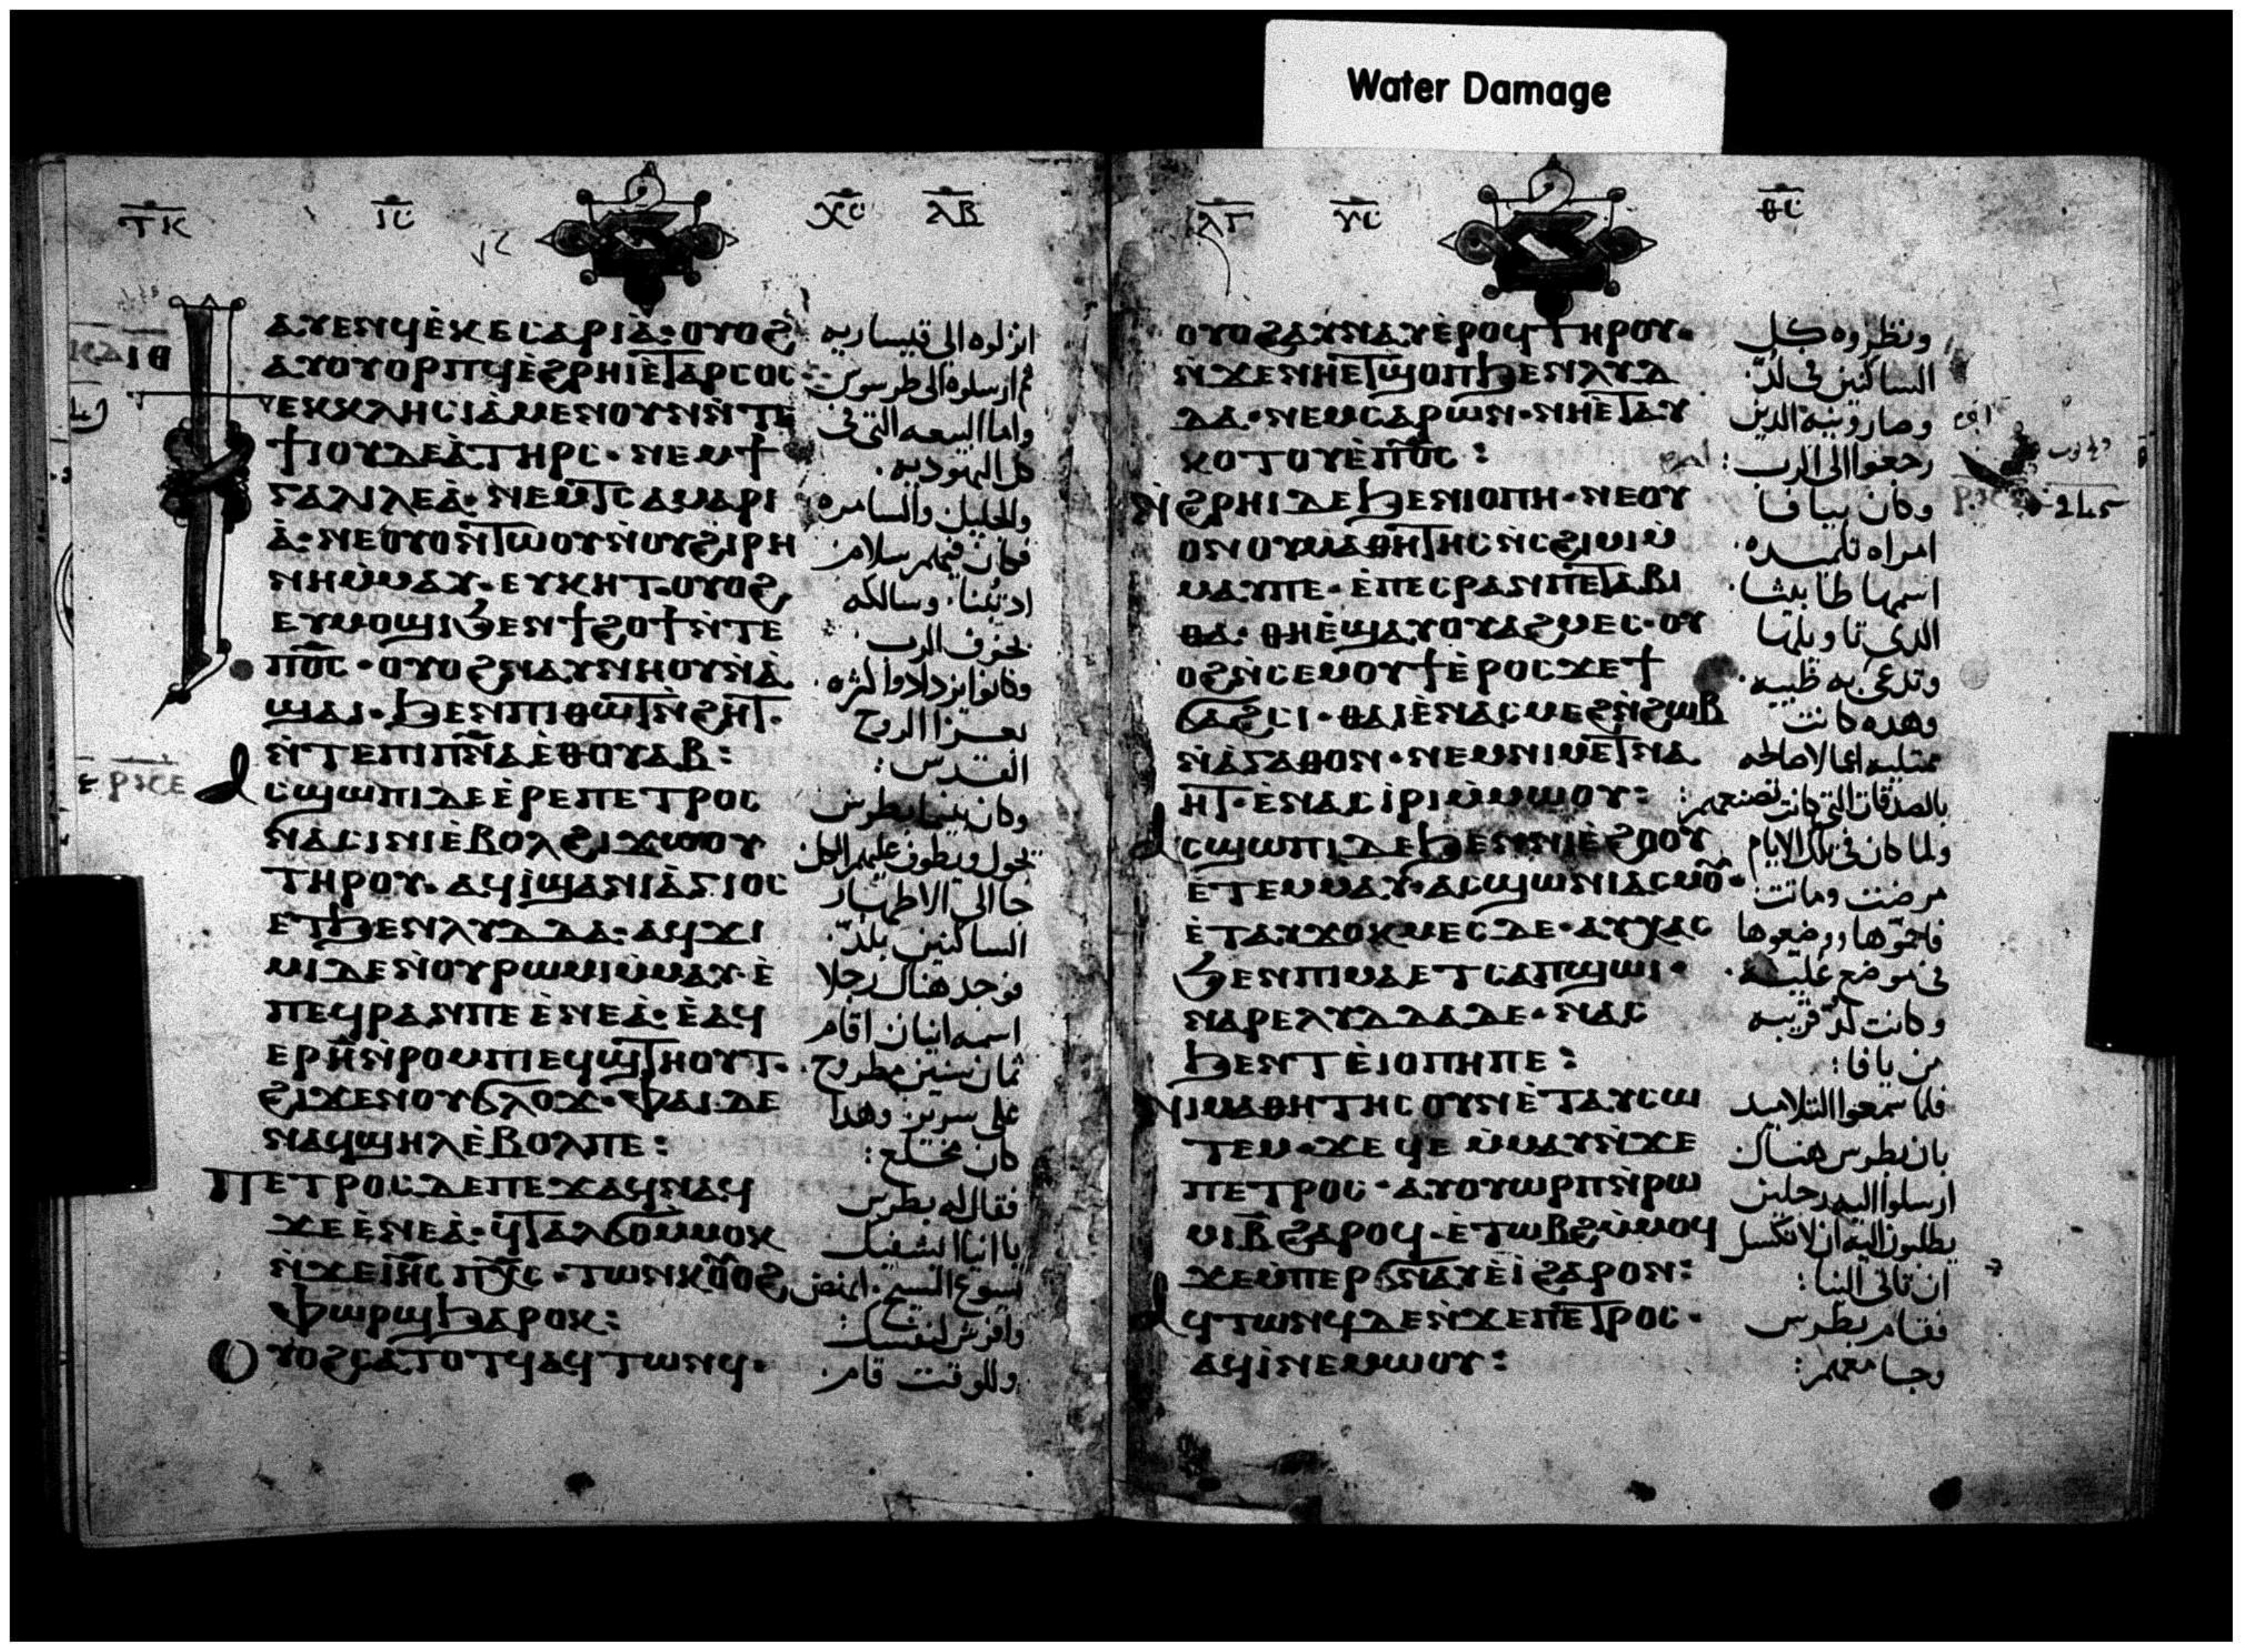 Water Damage
ⲧⲕ ⲓⲥ ⲭⲥ ⲗⲃ
ⲁⲩⲉⲛϥⲉ̀ⲕⲉⲥⲁⲣⲓⲁ̀· ⲟⲩⲟϩ
ⲁⲩⲟⲩⲟⲣⲡϥⲉ̀ϩⲣⲏⲓⲉ̀ⲧⲁⲣⲥⲟⲥ
ϯⲉⲕⲕⲗⲏⲥⲓⲁ̀ⲙⲉⲛⲟⲩⲛⲛ̀ⲧⲉ
ϯⲓⲟⲩⲇⲉⲁ̀ⲧⲏⲣⲥ· ⲛⲉⲙϯ
ⲅⲁⲗⲓⲗⲉⲁ̀· ⲛⲉⲙⲧⲥⲁⲙⲁⲣⲓ
ⲁ̀· ⲛⲉⲟⲩⲟⲛ̀ⲧⲱⲟⲩⲛ̀ⲟⲩϩⲓⲣⲏ
ⲛⲏⲙ̀ⲙⲁⲩ· ⲉⲩⲕⲏⲧ· ⲟⲩⲟϩ
ⲉⲩⲙⲟϣⲓϧⲉⲛϯϩⲟϯⲛ̀ⲧⲉ
ⲡⲟ̅ⲥ̅· ⲟⲩⲟϩⲛⲁⲩⲛⲏⲟⲩⲛ̀ⲁ̀
ϣⲁⲓ· ϧⲉⲛⲡⲓⲑⲱⲧⲛ̀ϩⲏⲧ·
ⲛ̀ⲧⲉⲡⲓⲡ̅ⲛ̅ⲁⲉ̀ⲑⲟⲩⲁⲃ:
ⲁⲥϣⲱⲡⲓⲇⲉⲉ̀ⲣⲉⲡⲉⲧⲣⲟⲥ
ⲛⲁ̀ⲥⲓⲛⲓⲉ̀ⲃⲟⲗϩⲓϫⲱⲟⲩ
ⲧⲏⲣⲟⲩ· ⲁϥⲓ̀ϣⲁⲛⲓⲁ̀ⲅⲓⲟⲥ
ⲉⲧϧⲉⲛⲗⲩⲇⲇⲁ· ⲁϥϫⲓ
ⲙⲓⲇⲉⲛ̀ⲟⲩⲣⲱⲙⲓⲙ̀ⲙⲁⲩ· ⲉ̀
ⲡⲉϥⲣⲁⲛⲡⲉⲉ̀ⲛⲉⲁ̀· ⲉ̀ⲁϥ
ⲉⲣⲏ̅ⲛ̀ⲣⲟⲙⲡⲓⲉϥϣⲧⲏⲟⲩⲧ·
ϩⲓϫⲉⲛⲟⲩϭⲗⲟϫ· ⲫⲁⲓ· ⲇⲉ
ⲛⲁϥϣⲏⲗⲉ̀ⲃⲟⲗⲡⲉ:
ⲡⲉⲧⲣⲟⲥⲇⲉⲡⲉϫⲁϥⲛⲁϥ
ϫⲉⲉ̀ⲛⲉⲁ̀· ϥⲧⲁⲗϭⲟⲙ̀ⲙⲟⲕ
ⲛ̀ϫⲉⲓ̅ⲏ̅ⲥ̅ ⲡ̅ⲭ̅ⲥ̅· ⲧⲱⲛⲕ ⲟⲩⲟϩ
ⲫⲱⲣϣϧⲁⲣⲟⲕ:
ⲟⲩⲟϩⲥⲁⲧⲟⲧϥⲁϥⲧⲱⲛϥ·
انزلوه الى قيساريه
ثم ارسلوه الى طرسوس
واما البيعه التى فى
كل اليهوديه.
والجليل والسامره
فكان فيهم سلام
اذ تبنا. وسالكه
بخوف الرب
وكانوا يزدادوا كثره.
بعزا الروح
القدس:
وكان بينما بطرس
يجول ويطوف عليهم الكل
جا الى الاطهار
الساكنين بلد.
فوجد هناك رجلا
اسمه انيان اقام
ثمان سنين مطروح.
على سرير. وهذا
كان مخلع:
فقال له بطرس
يا انيا يشفيك
يسوع المسيح. انهض
وافرش لنفسك:
وللوقت قام.
ⲗⲅ ⲩⲥ ⲑⲥ
ⲟⲩⲟϩⲁⲩⲛⲁⲩⲉ̀ⲣⲟϥⲧⲏⲣⲟⲩ·
ⲛ̀ϫⲉⲛⲏⲉⲧϣⲟⲡϧⲉⲛⲗⲩⲇ
ⲇⲁ· ⲛⲉⲙⲥⲁⲣⲱⲛ· ⲛⲏⲉ̀ⲧⲁⲩ
ⲕⲟⲧⲟⲩⲉ̀ⲡⲟ̅ⲥ̅:
ⲛ̀ϩⲣⲏⲓⲇⲉϧⲉⲛⲓⲟⲡⲏ· ⲛⲉⲟⲩ
ⲟⲛⲟⲩⲙⲁⲑⲏⲧⲏⲥⲛ̀ⲥϩⲓⲙⲓⲙ̀
ⲙⲁⲩⲡⲉ· ⲉ̀ⲡⲉⲥⲣⲁⲛⲡⲉⲧⲁⲃⲓ
ⲑⲁ· ⲑⲏⲉ̀ϣⲁⲩⲟⲩⲁϩⲙⲉⲥ· ⲟⲩ
ⲟϩⲛ̀ⲥⲉⲙⲟⲩϯⲉ̀ⲣⲟⲥϫⲉϯ
ϭⲁϩⲥⲓ· ⲑⲁⲓⲉ̀ⲛⲁⲥⲙⲉϩⲛ̀ϩⲱⲃ
ⲛ̀ⲁ̀ⲅⲁⲑⲟⲛ· ⲛⲉⲙⲛⲓⲙⲉⲧⲛⲁ
ⲏⲧ· ⲉ̀ⲛⲁⲥⲓ̀ⲣⲓⲙ̀ⲙⲱⲟⲩ:
ⲁⲥϣⲱⲡⲓⲇⲉϧⲉⲛⲛⲓⲉ̀ϩⲟⲟⲩ
ⲉ̀ⲧⲉⲙⲙⲁⲩ· ⲁⲥϣⲱⲛⲓⲁⲥⲙⲟ̅·
ⲉ̀ⲧⲁⲩϫⲟⲕⲙⲉⲥⲇⲉ· ⲁⲩⲭⲁⲥ
ϧⲉⲛⲡⲓⲙⲁⲉⲧⲥⲁⲡϣⲱⲓ·
ⲛⲁⲣⲉⲗⲩⲇⲇⲁⲇⲉ· ⲛⲁⲥ
ϧⲉⲛⲧⲉ̀ⲓⲟⲡⲏⲡⲉ:
ⲛⲓⲙⲁⲑⲏⲧⲏⲥ ⲟⲩⲛⲉ̀ⲧⲁⲩⲥⲱ
ⲧⲉⲙ· ϫⲉ ϥⲉ ⲙ̀ⲙⲁⲩⲛ̀ϫⲉ
ⲡⲉⲧⲣⲟⲥ· ⲁⲩⲟⲩⲱⲣⲡⲛ̀ⲣⲱ
ⲙⲓⲃ̅ϩⲁⲣⲟϥ· ⲉ̀ⲧⲱⲃϩⲙ̀ⲙⲟϥ
ϫⲉⲙ̀ⲡⲉⲣϭⲛⲁⲩⲉ̀ⲓ̀ϩⲁⲣⲟⲛ:
ⲁϥⲧⲱⲛϥⲇⲉⲛ̀ϫⲉⲡⲉⲧⲣⲟⲥ·
ⲁϥⲓ̀ⲛⲉⲙⲱⲟⲩ:
ونظروه كل
الساكنين فى لد.
وصارونيه الذين
رجعوا الى الرب:
وكان بيافا
امراه تلميذه.
اسمها طابيثا.
الذى تاويلها
وتدعى به ظبيه.
وهذه كانت
ممتليه اعمالا صالحه
بالصدقات التى كانت تصنعهم:
ولما كان فى تلك الايام
مرضت وماتت.
فاحموها ووضعوها
فى موضع عليه.
وكانت لد قريبه
من يافا:
فلما سمعوا التلاميذ
بان بطرس هناك
ارسلوا اليه رجلين
يطلبون اليه ان لا تكسل
ان تاتى الينا:
فقام بطرس
وجا معهم:
245